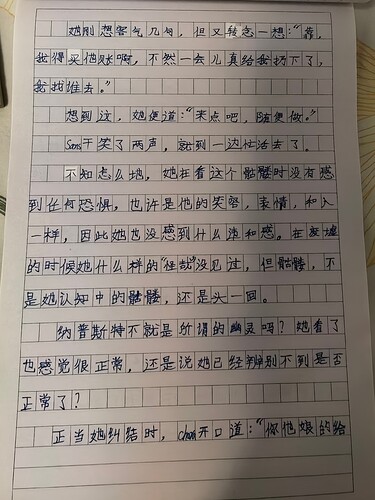 她刚想客气几句，但又转念一想：“靠，
我得买他账啊，不然一会儿真给我扔下了，
我找谁去。”
想到这，她便道：“来点吧，随便做。”
Sans干笑了两声，就到一边忙活去了。
不知怎么地，她在看这个骷髅时没有感
到任何恐惧，也许是他的笑容，表情，和人
一样，因此她也没感到什么违和感。在废墟
的时候她什么样的“怪哉”没见过，但骷髅，不
是她认知中的骷髅，还是头一回。
纳普斯特不就是所谓的幽灵吗？她看了
也感觉很正常，还是说她已经辨别不到是否
正常了？
正当她纠结时，开口道：“你他娘的给